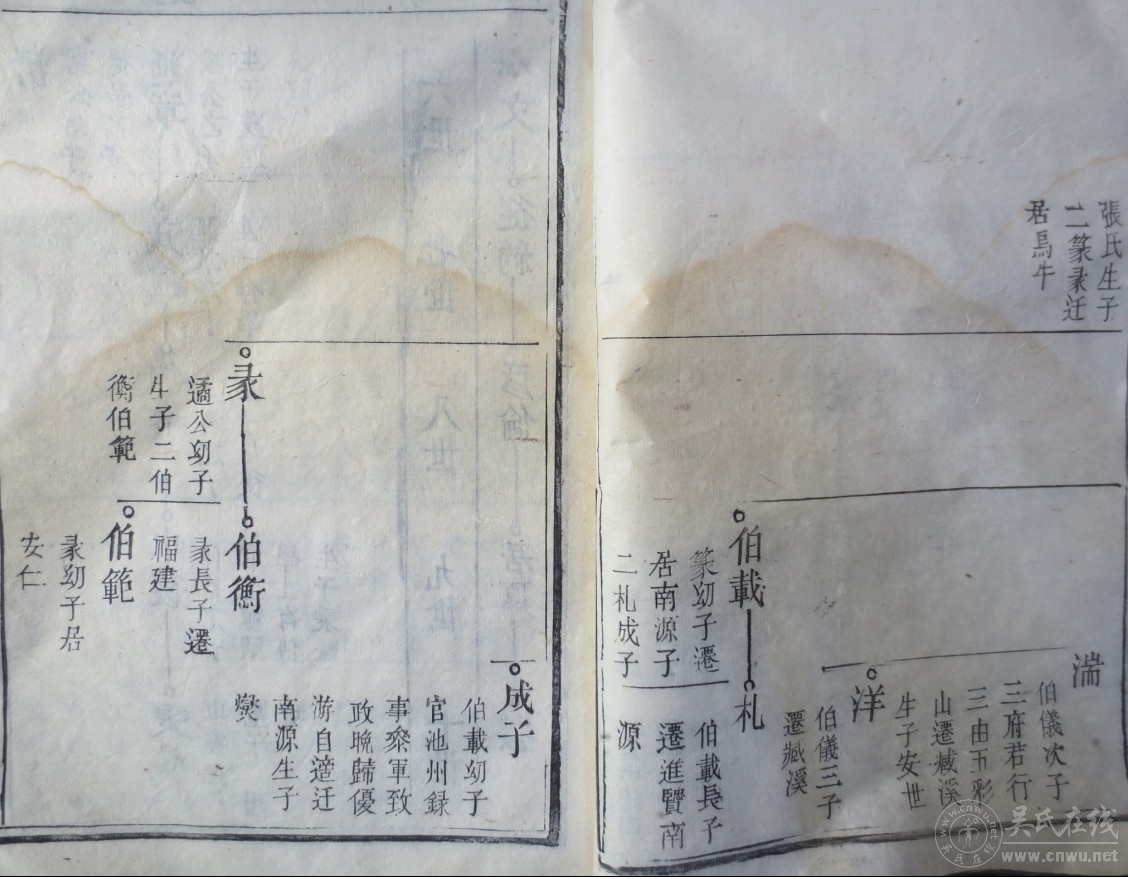 張氏生子
二篆彔迁
居馬牛
湍
伯儀次子
三府君行
三由玉彩
山遷藏溪
生子安世
洋
伯儀三子
遷藏溪
伯載
篆幼子遷
居南源子
二札成子
札
伯載長子
遷進賢南
源
成子
伯載幼子
官池州録
事叅軍致
政晚歸優
游自
迁
南源生子
爕
彔
遹公幼子
生子二伯
衡伯範
伯衡
彔長子遷
福建
伯範
彔幼子居
安仁
吴氏在线
www.cnwu.net